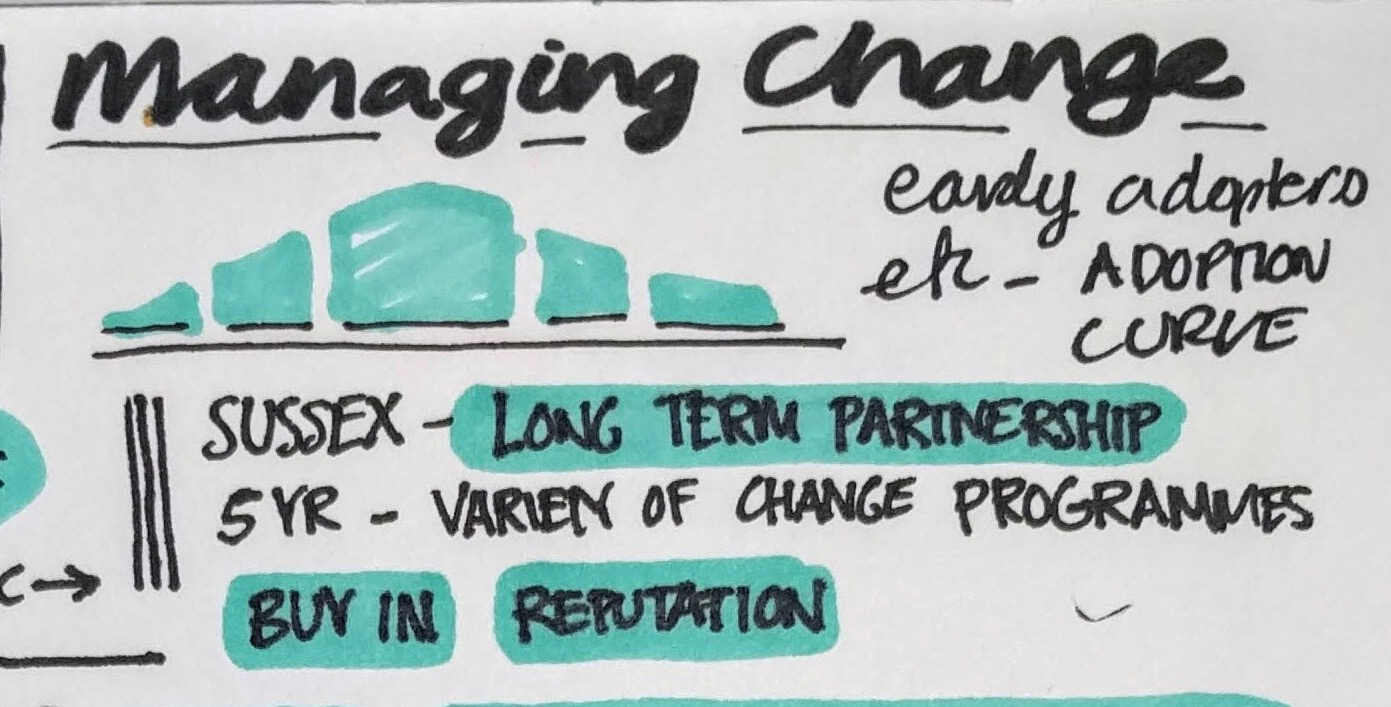 Managing Change
early adopters
etc - ADOPTION
CURVE
SUSSEX - LONG TERM PARTNERSHIP
5 YR - VARIETY OF CHANGE PROGRAMMES
C →
BUY IN REPUTATION